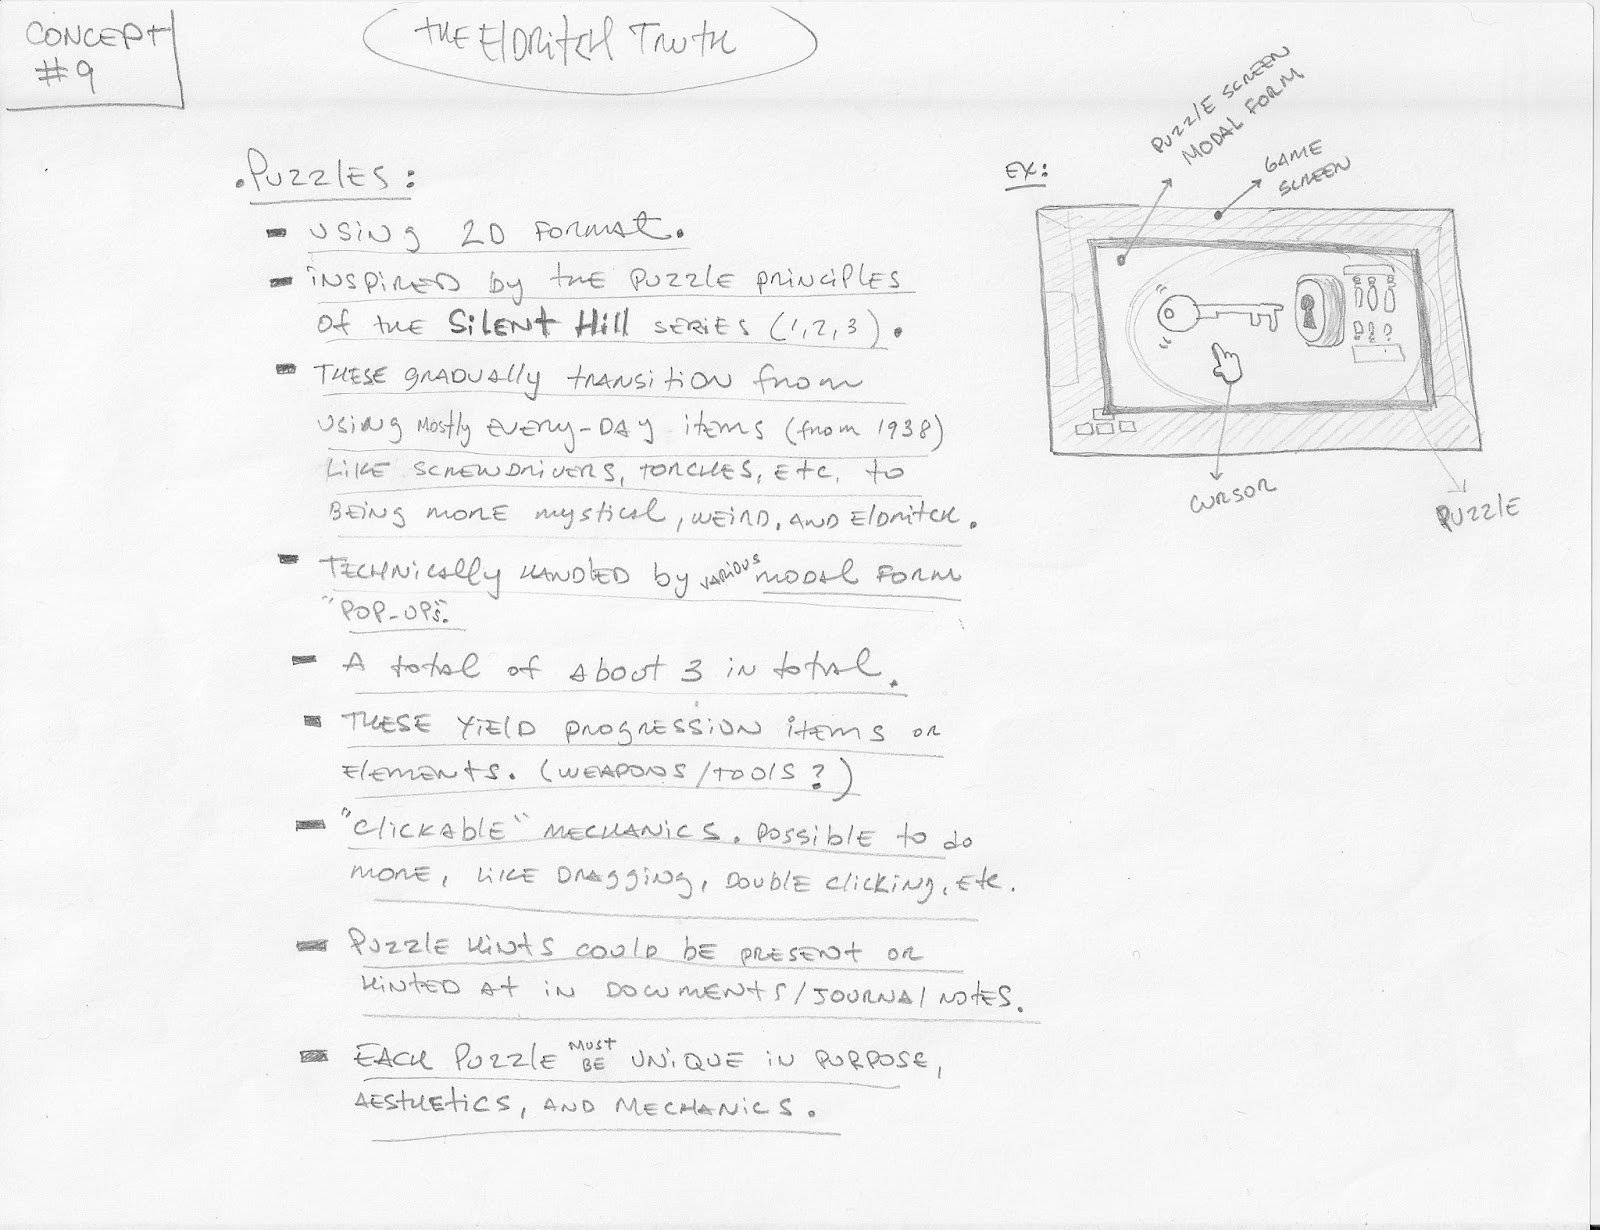 CONCEPT
#9
THE ELDRITCH TRUTH
. PUZZLES:
- USING 2D FORMAT.
- INSPIRED by THE PUZZLE PRINCIPLES
Of THE SILENT HILL SERIES (1,2,3).
- THESE gRADUALLY TRANSITION from
USING MOSTLY EVERY-DAY ITEMS (from 1938)
LIKE SCREWDRIVERS, TORCHES, Etc. to
BEING MORE MYSTICAL, WEIRD, AND ELDRITCH.
- TECHNICALLY HANDLED by VARIOUS MODAL FORM
"POP-UPS".
- A total of About 3 IN total.
- THESE YIELD PROGRESSION ITEMS OR
ELEMENTS. (WEAPONS/TOOLS?)
- "CLICKABLE" MECHANICS. POSSIBLE to do
MORE, LIKE DRAGGING, DOUBLE CLICKING, Etc.
- PUZZLE HINTS COULD BE PRESENT OR
HINTED AT IN DOCUMENTS/JOURNAL NOTES.
- EACH PUZZLE MUST BE UNIQUE IN PURPOSE,
AESTHETICS, AND MECHANICS.
EX:
PUZZLE SCREEN
MODAL FORM
GAME
SCREEN
CURSOR
PUZZLE